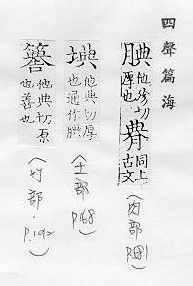 四聲篇海
腆他殄切厚也同上古文
(肉部 P.181)
他典切厚也通作腆
(土部 P.68)
他典切厚也善也
(竹部. P.192)